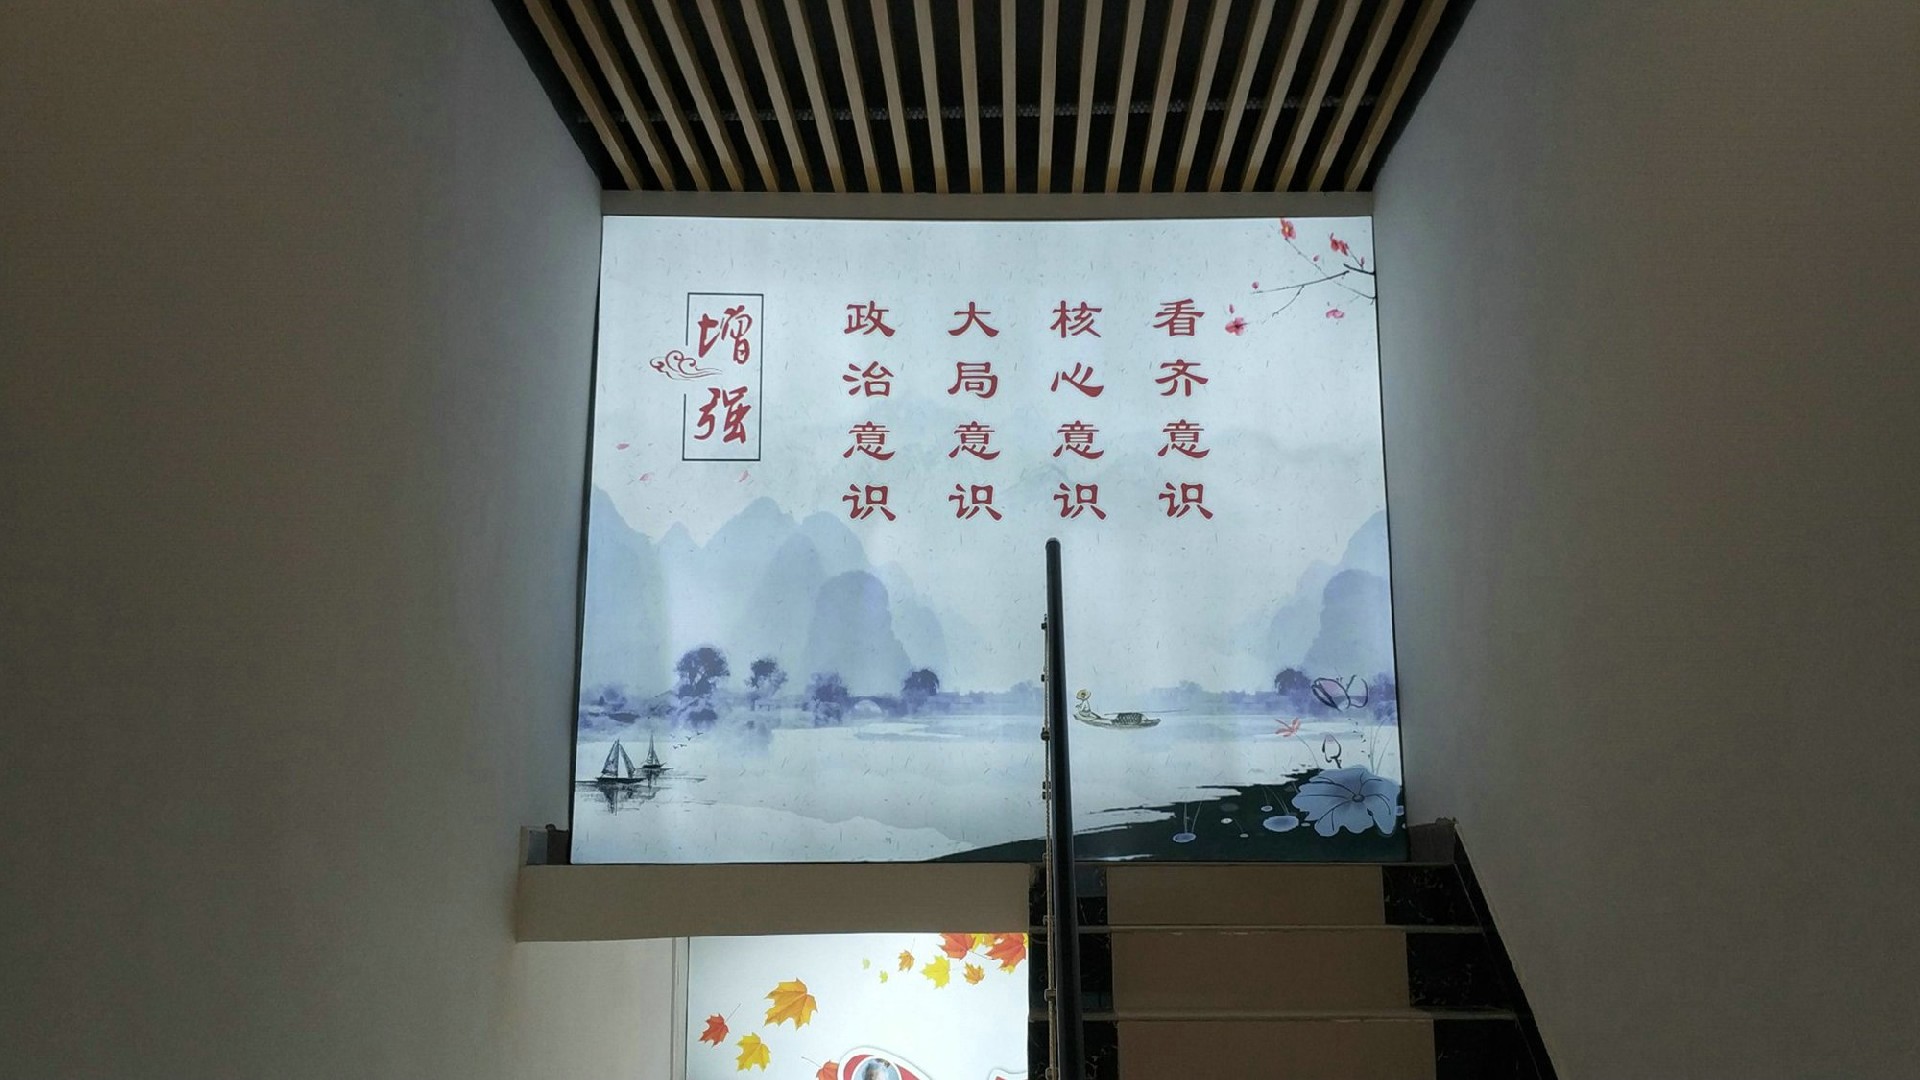 增强
政治意识
大局意识
核心意识
看齐意识